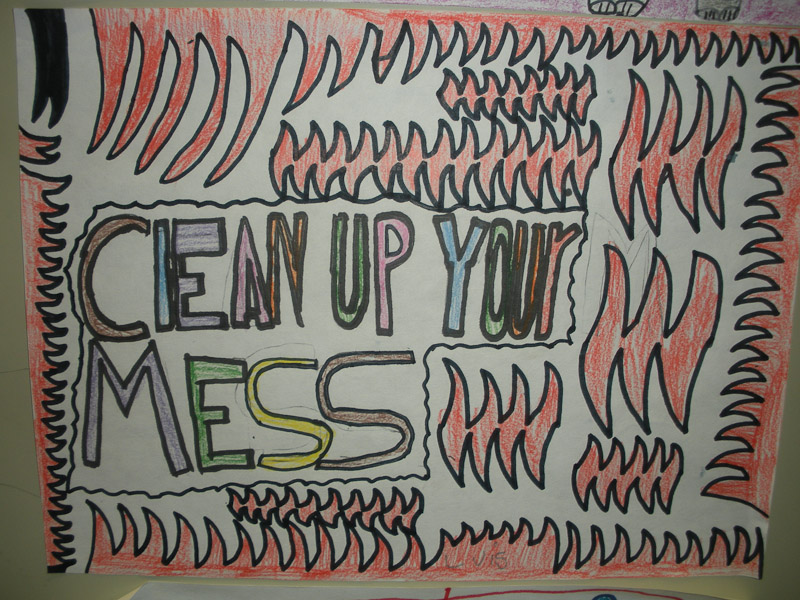 ClEAN UP YOUr
MESS